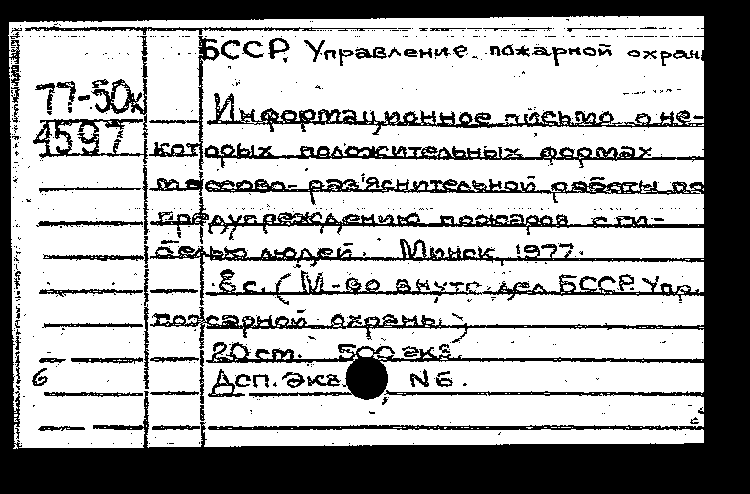 БССР. Управление пожарной охран
77-50к
4597
Информационное письмо о не-
которых положительных формах
массово-раз'яснительной работы по
предупреждению пожаров с ги-
белью людей. Минск, 1977.
8 с. (М-во внутр. дел БССР. Упр.
пожарной охраны)
20 см. 500 экз.
6 Дсп. Экз. N 6.